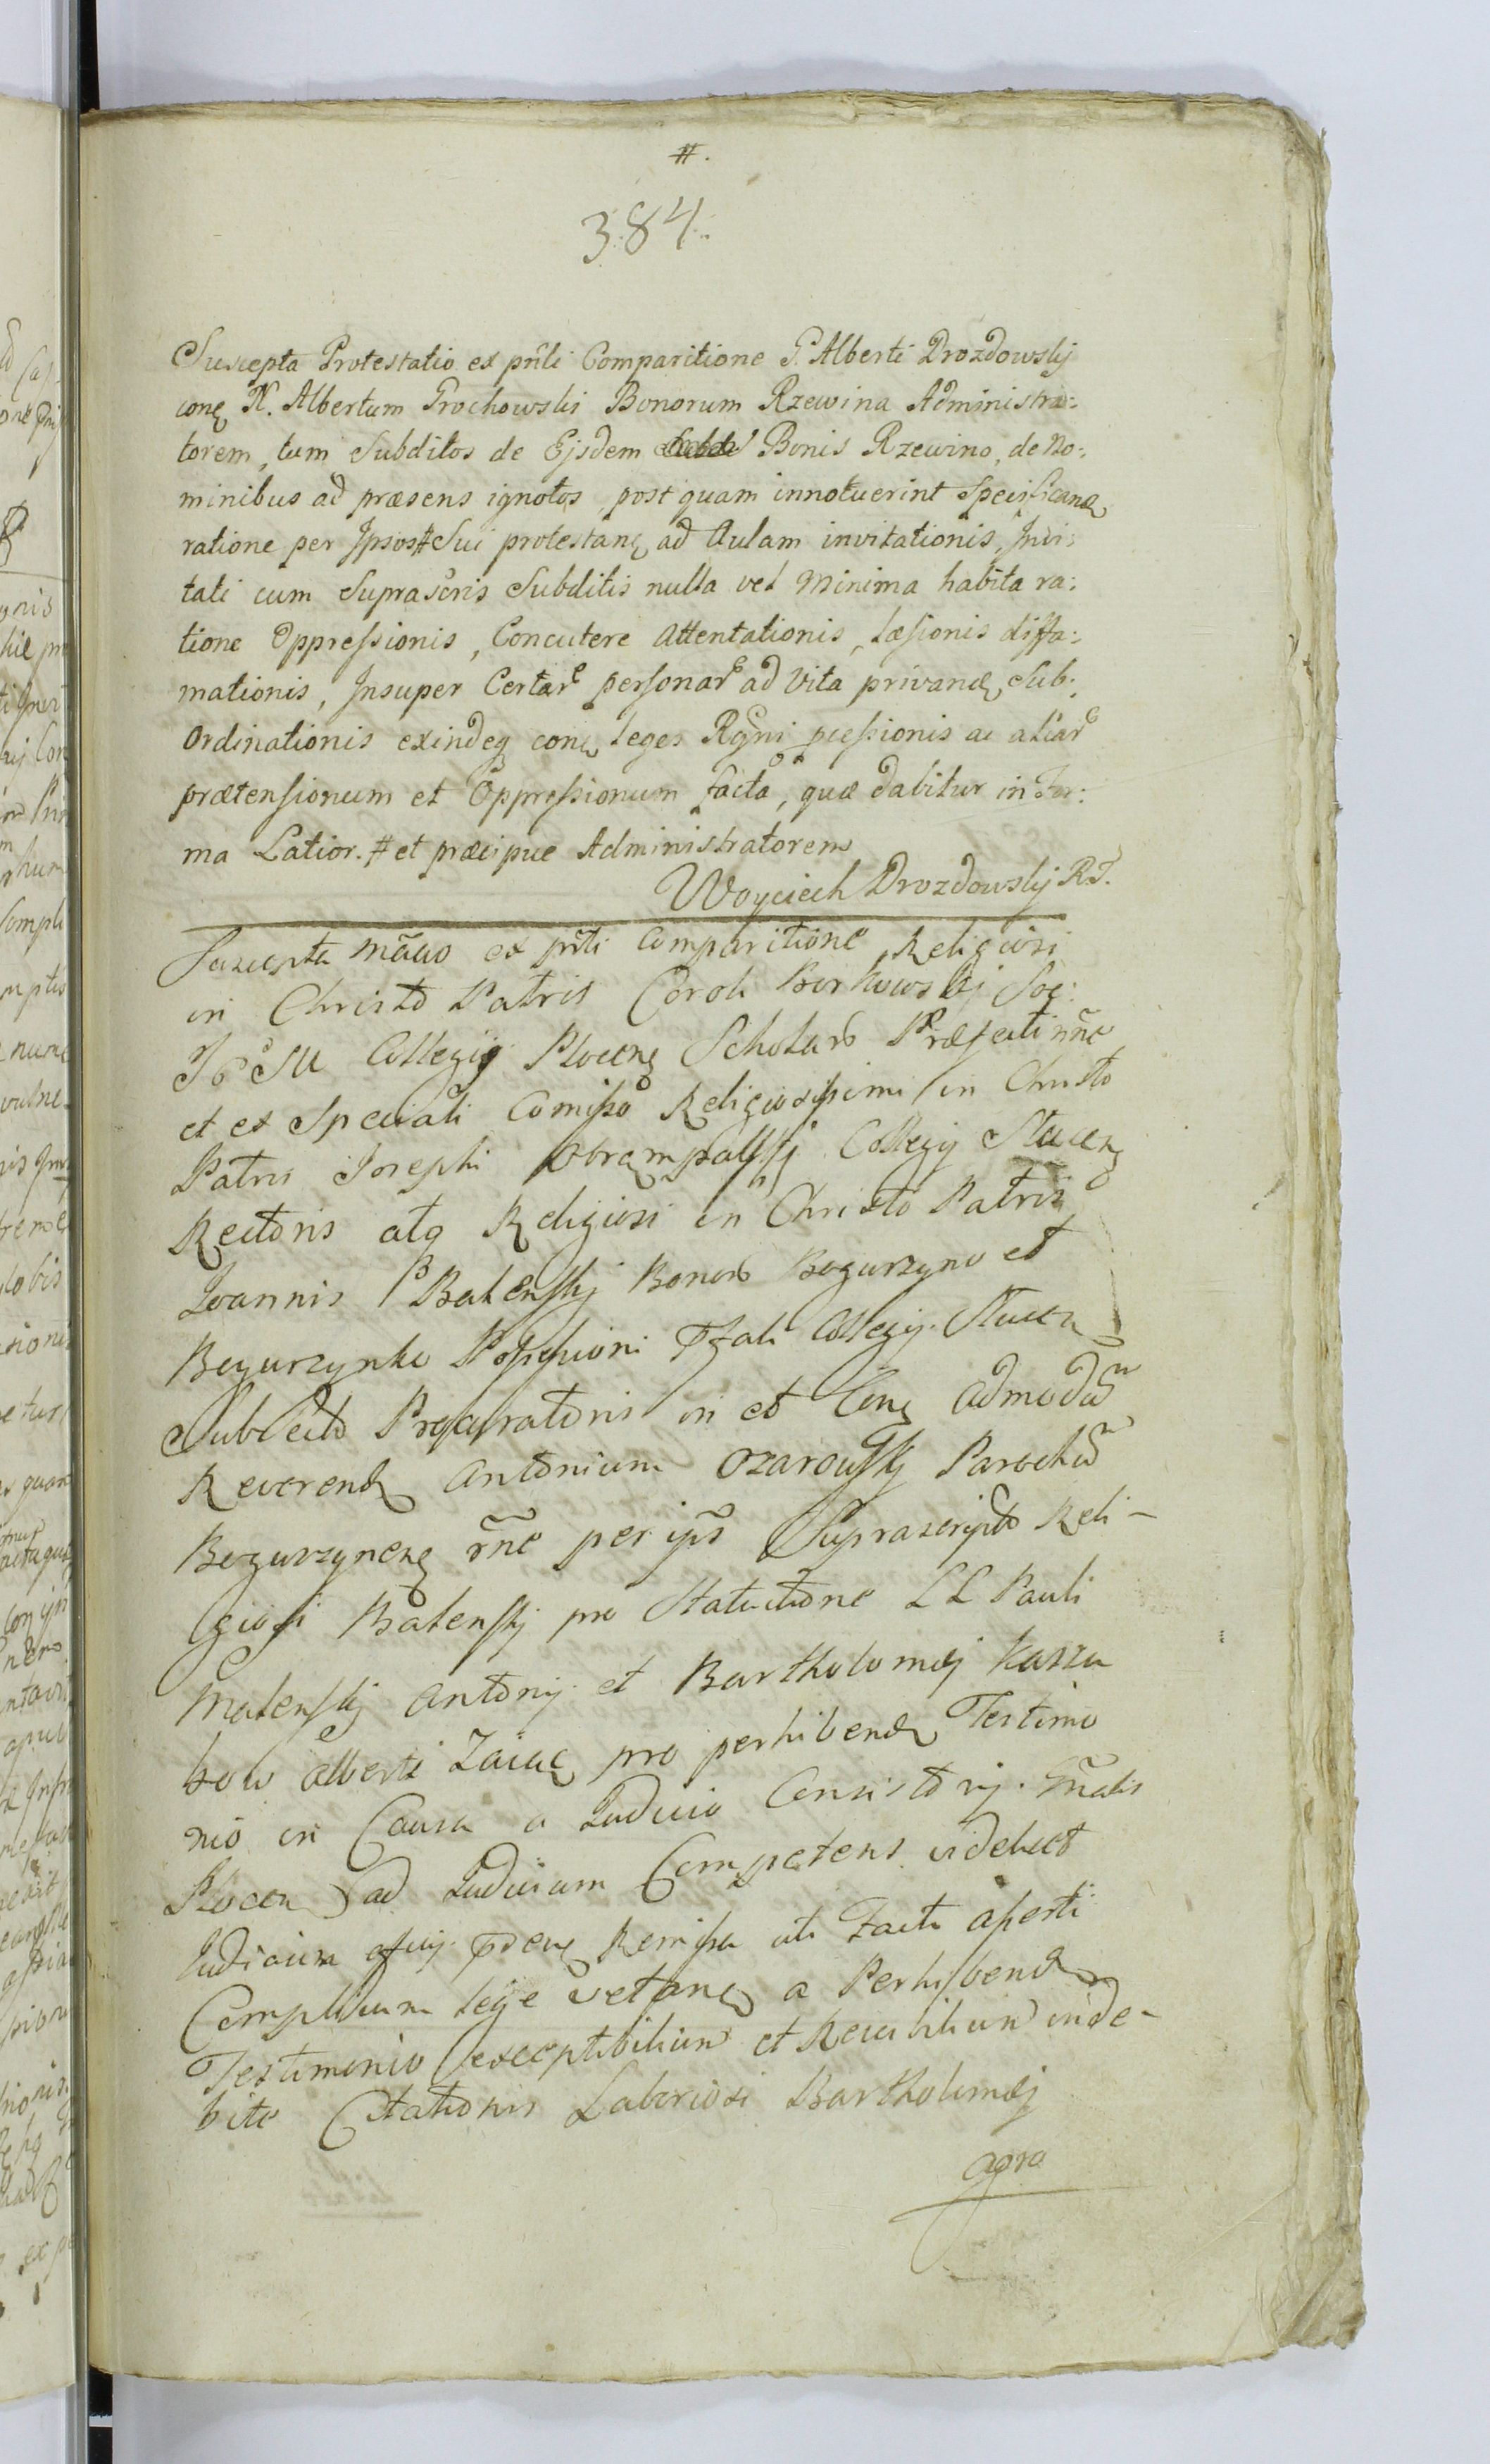 #.
384.
Suscepta Protestatio ex pñli Comparitione G. Alberti Drozdowskj
conę N. Albertum Grochowski Bonorum Rzewina Administra:
torem, tum Subditos de Ejsdem Bonis Rzewino, de No:
minibus ad præsens ignotos, post quam innotuerint Specificand
ratione per Ipsos # Sui protestanę ad Aulam invitationis, Invi:
tati cum Suprascris Subditis nulla vel Minima habita ra:
tione Oppressionis, Concutere Attentationis, Læsionis diffa:
mationis, Insuper Certar personar ad Vita privand Sub:
Ordinationis exindeq conę Leges Rgni pcessionis ac aliar
prætensionum et Oppressionum facta, quæ dabitur in For:
ma Latior. # et præcipue Administratorem
Woyciech Drozdowskj
Suscepta ex pñli Comparitione Religiosi
in Christo Patris Caroli Borkowskj Soc:
JESU Collegij Plocenę Scholarũ Præfecti nñe
et ex Speciali Comisso Religiosissimi in Christo
Patris Josephi Collegij Plocenę
Rectoris atq Religiosi in Christo Patris
Joannis Bonorũ Bogurzyno et
Bogurzynko Possessioni Collegij Plocen
Subiecto Procuratoris in et Conę Admodũ
Reverend Antonium Ozarowskj Parochũ
Bogurzynenę rñe per ips Suprascripto Reli-
giosi pro Statutione LL Pauli
Antonij et Bartholomæj Kasza
Alberti Zaiąc pro perhibend Testimo
nio in Causa a Judicio Consistorij Gñalis
Plocen ad Judicium Competens videlicet
Judicium Remissa uti Facti asserti
Complicum lege vetanę a Perhibend
Testimonio exceptibilium et Reiicibilium inde-
bite Citationis Laboriosi Bartholomæj